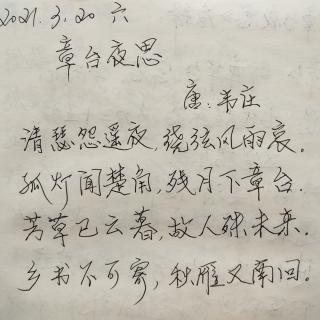 2021.3.20 六
章台夜思
唐:韦庄
清瑟怨遥夜,绕弦风雨哀.
孤灯闻楚角,残月下章台.
芳草已云暮,故人殊未来.
乡书不可寄,秋雁又南回.